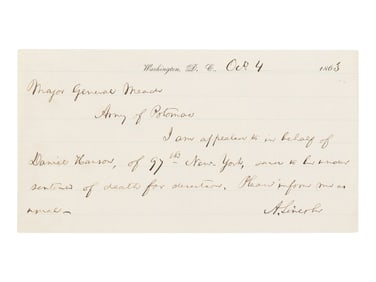 Washington, D. C. Oct. 4 1863
Major General Meade
Army of Potomac
I am appealed to in behalf of
Daniel Hanson, of 97th New York, said to be under
sentence of death for desertion. Please inform me as
A. Lincoln